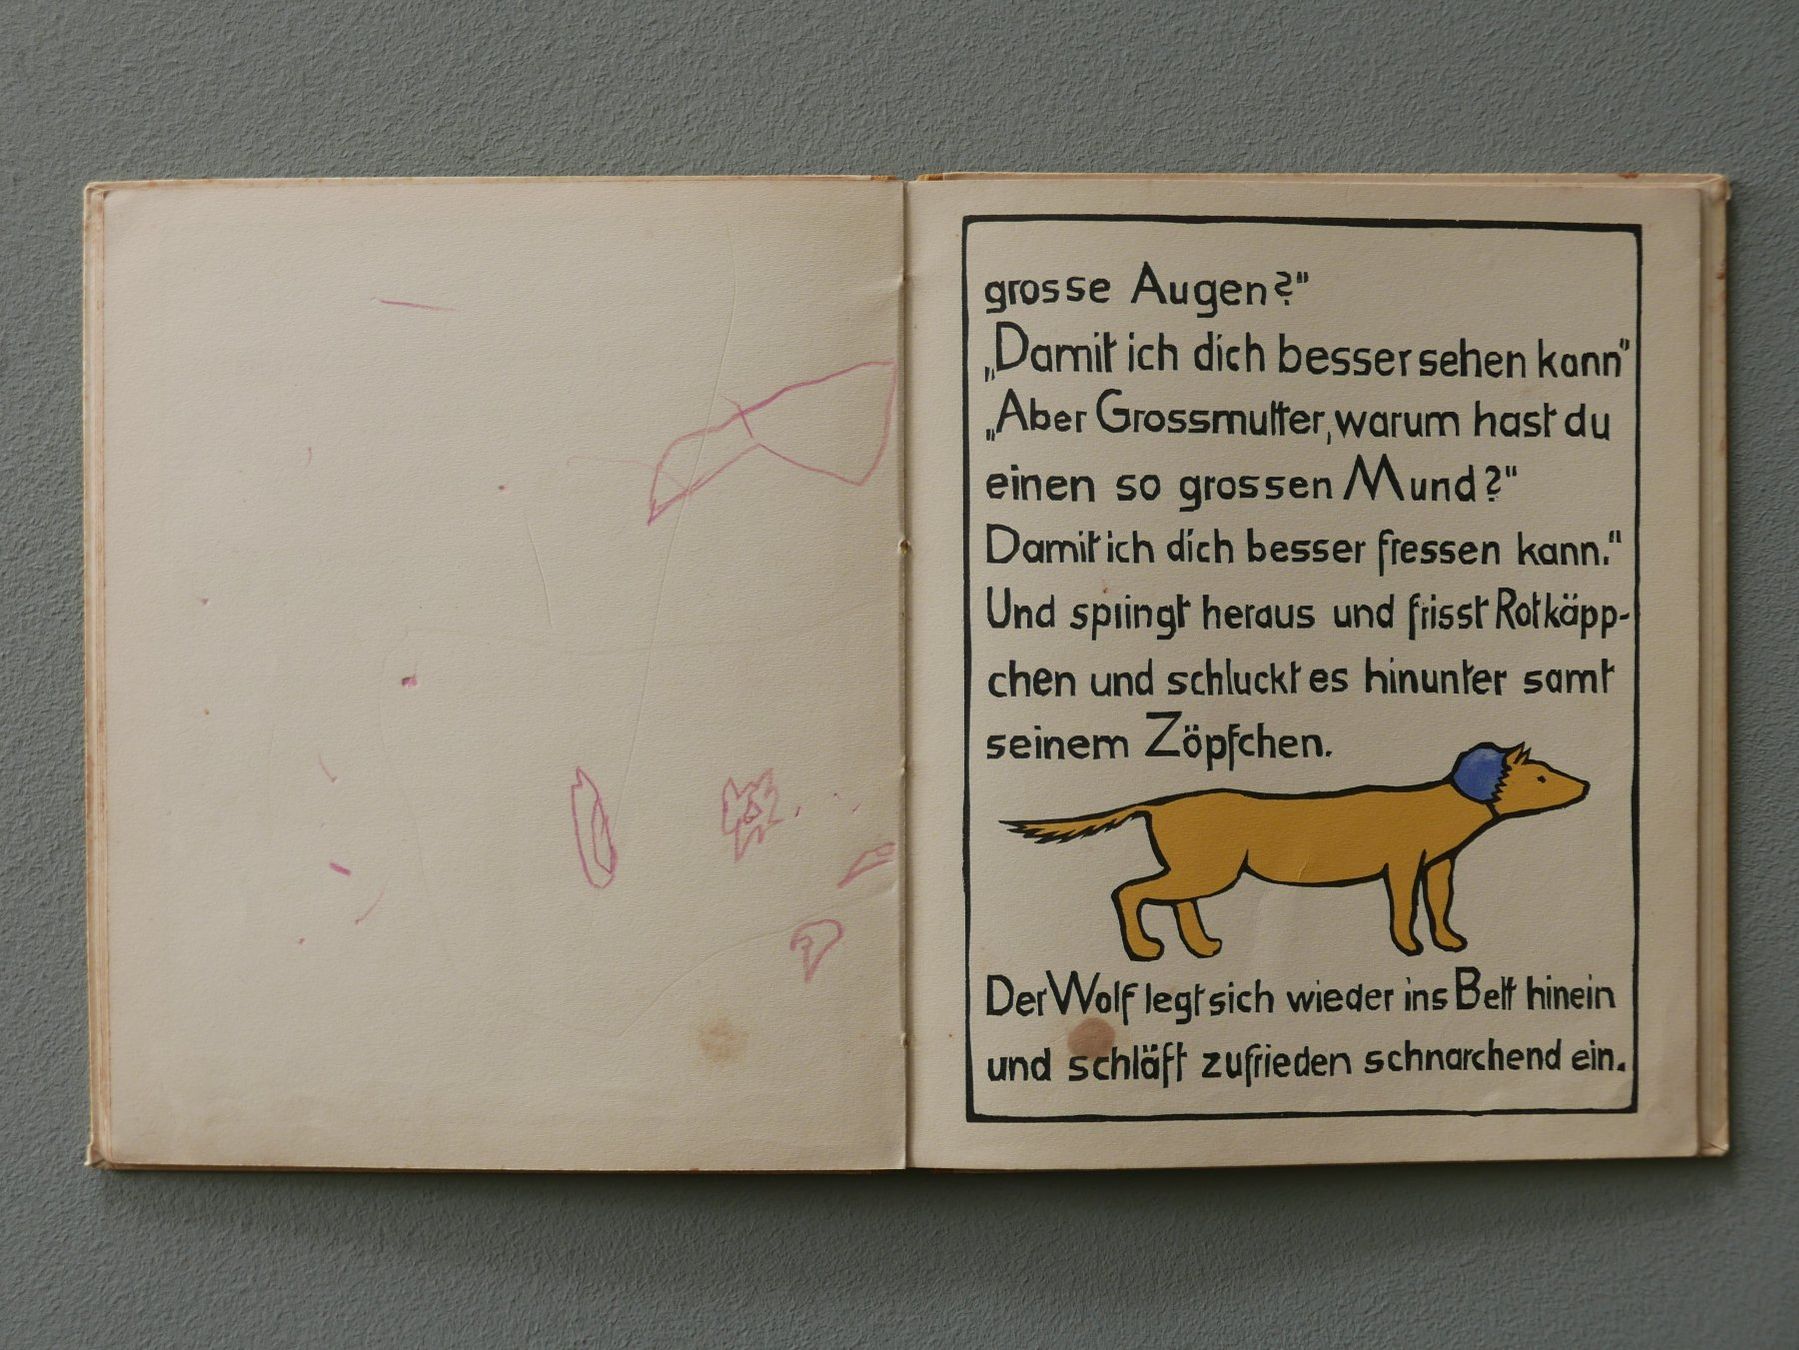 grosse Augen?"
„Damit ich dich besser sehen kann"
„Aber Grossmutter, warum hast du
einen so grossen Mund?"
Damit ich dich besser fressen kann."
Und springt heraus und frisst Rotkäpp-
chen und schluckt es hinunter samt
seinem Zöpfchen.
Der Wolf legt sich wieder ins Bett hinein
und schläft zufrieden schnarchend ein.